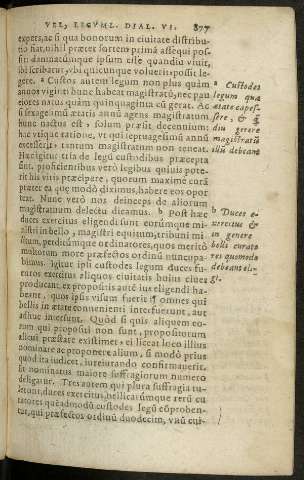 VEL, LEGVML. DIAL. VI. 877
expers, ac si qua bonorum in ciuitate distribu-
tio fiat, nihil præter sortem primã assequi pos-
sit: damnatumque ipsum esse quandiu viuit,
ibi scribatur, vbi quicunque voluerit possit le-
gere. a Custos autem legum non plus quàm
annos viginti hunc habeat magistratũ, nec pau-
ciores natus quàm quinquaginta cũ gerat. Ac
si sexagesimũ ætatis annũ agens magistratum
hunc nactus est, solum præsit decennium:
hac vtique ratione, vt qui septuagesimũ annũ
excesserit, tantum magistratum non teneat.
Hæc igitur tria de legũ custodibus præcepta
sint. proficientibus verò legibus quiuis pote-
rit his viris præcipere, quorum maxime curã
præter ea quæ modò diximus, habere eos opor
tet. Nunc verò nos deinceps de aliorum
magistratuum delectu dicamus. b Post hæc
duces exercitus eligendi sunt eorũmque mi-
nistri in bello, magistri equitum, tribuni mi-
litum, perditũmque ordinatores, quos meritò
multorum more præfectos ordinũ nuncupa-
bimus. igitur ipsi custodes legum duces fu-
turos exercitus aliquos ciuitatis huius ciues
producant, ex propositis autẽ ius eligendi ha-
beant, quos ipsis visum fuerit omnes qui
bellis in ætate conuenienti interfuerunt, aut
adhuc intersunt. Quòd si quis aliquem eo-
rum qui propositi non sunt, propositorum
alicui præstare existimet, ei liceat loco illius
nominare ac proponere alium, si modò prius
quòd ita iudicet, iureiurando confirmauerit.
Is nominatus maiore suffragiorum numero
deligatur. Tres autem qui plura suffragia tu-
lerunt, duces exercitus, bellicarũmque rerũ cu-
ratores quẽadmodũ custodes legũ cõproben-
tur, qui præfectos ordinũ duodecim, vnũ cui-
a Custodes
legum qua
ætate capes-
sere, & q̃
diu gerere
magistratũ
illũ debeant
b Duces e-
xercitus &
in genere
bellis curato
res quomodo
debeant eli-
gi.